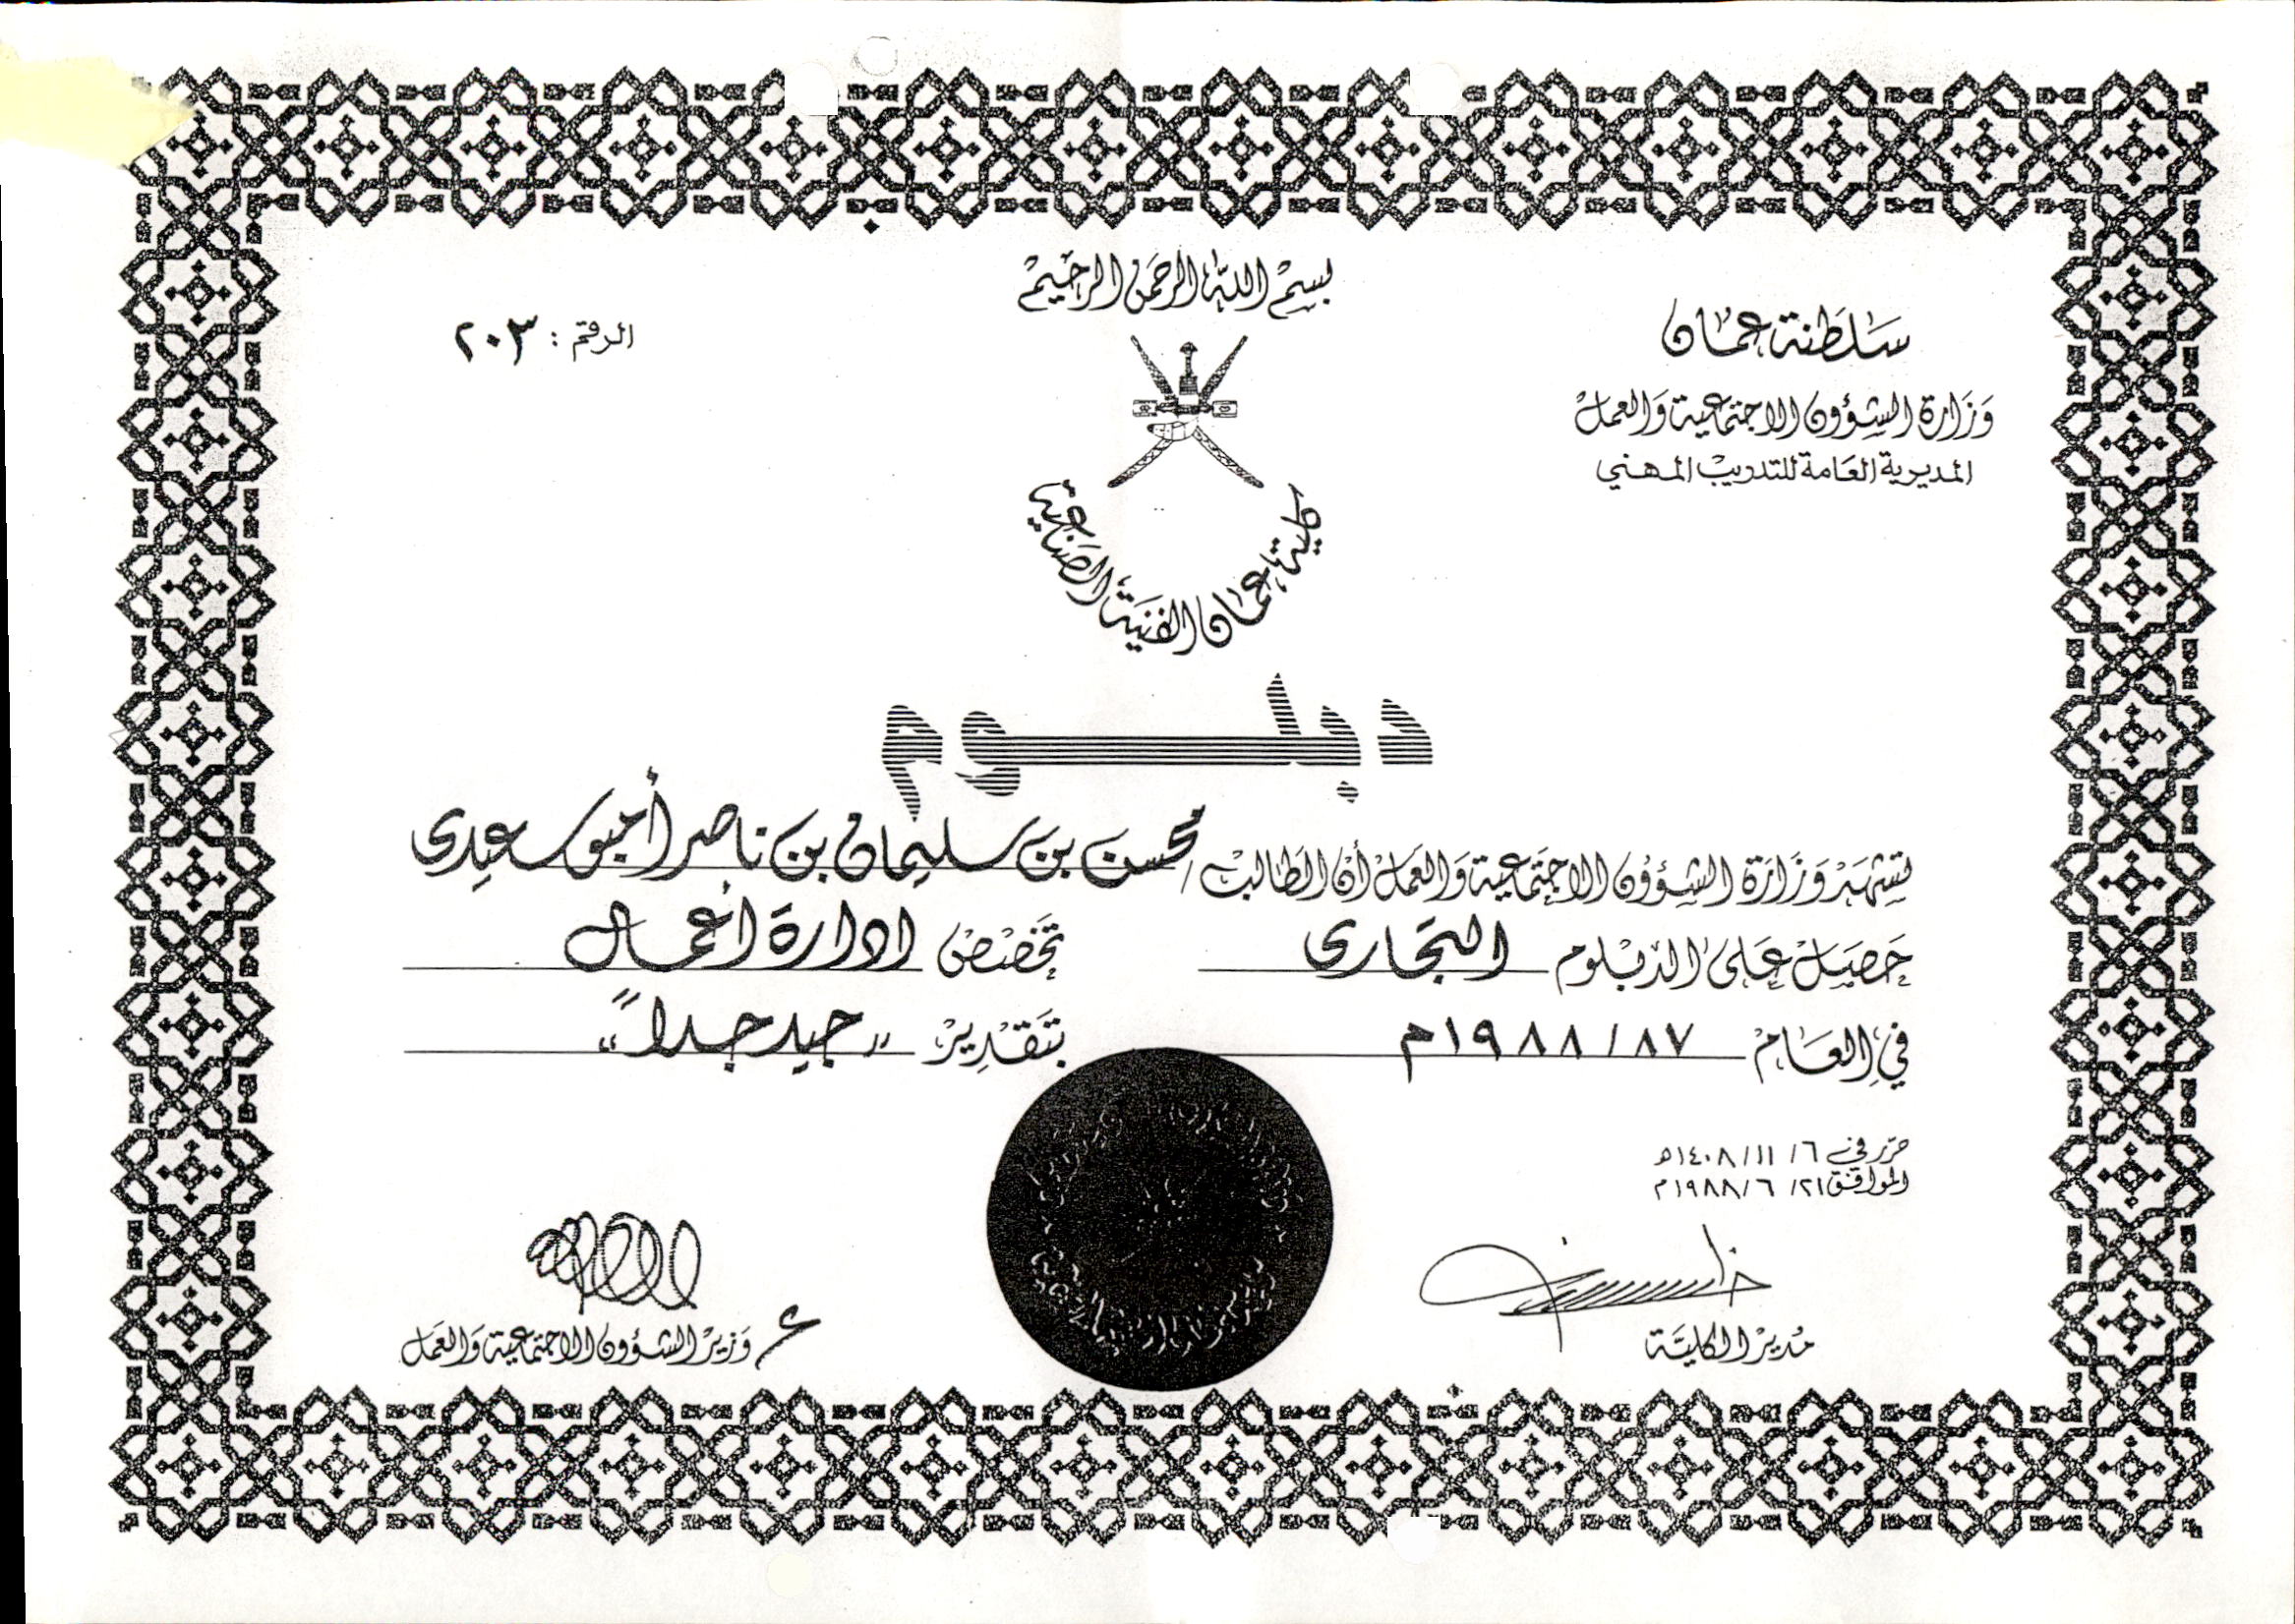 بسم الله الرحمن الرحيم
سلطنة عمان
وزارة الشؤون الاجتماعية والعمل
المديرية العامة للتدريب المهني
الرقم : ٢٠٣
كلية عمان الفنية الصناعية
دبلوم
تشهد وزارة الشؤون الاجتماعية والعمل أن الطالب / محسن بن سليمان بن ناصر أمبوسعيدى
حصل على الدبلوم التجارى تخصص ادارة أعمال
في العام ١٩٨٨/٨٧م بتقدير „جيد جداً“
حرر في ٦ /١١ /١٤٠٨هـ
الموافق ٢١/ ٦ /١٩٨٨م
مدير الكلية
ع/ وزير الشؤون الاجتماعية والعمل